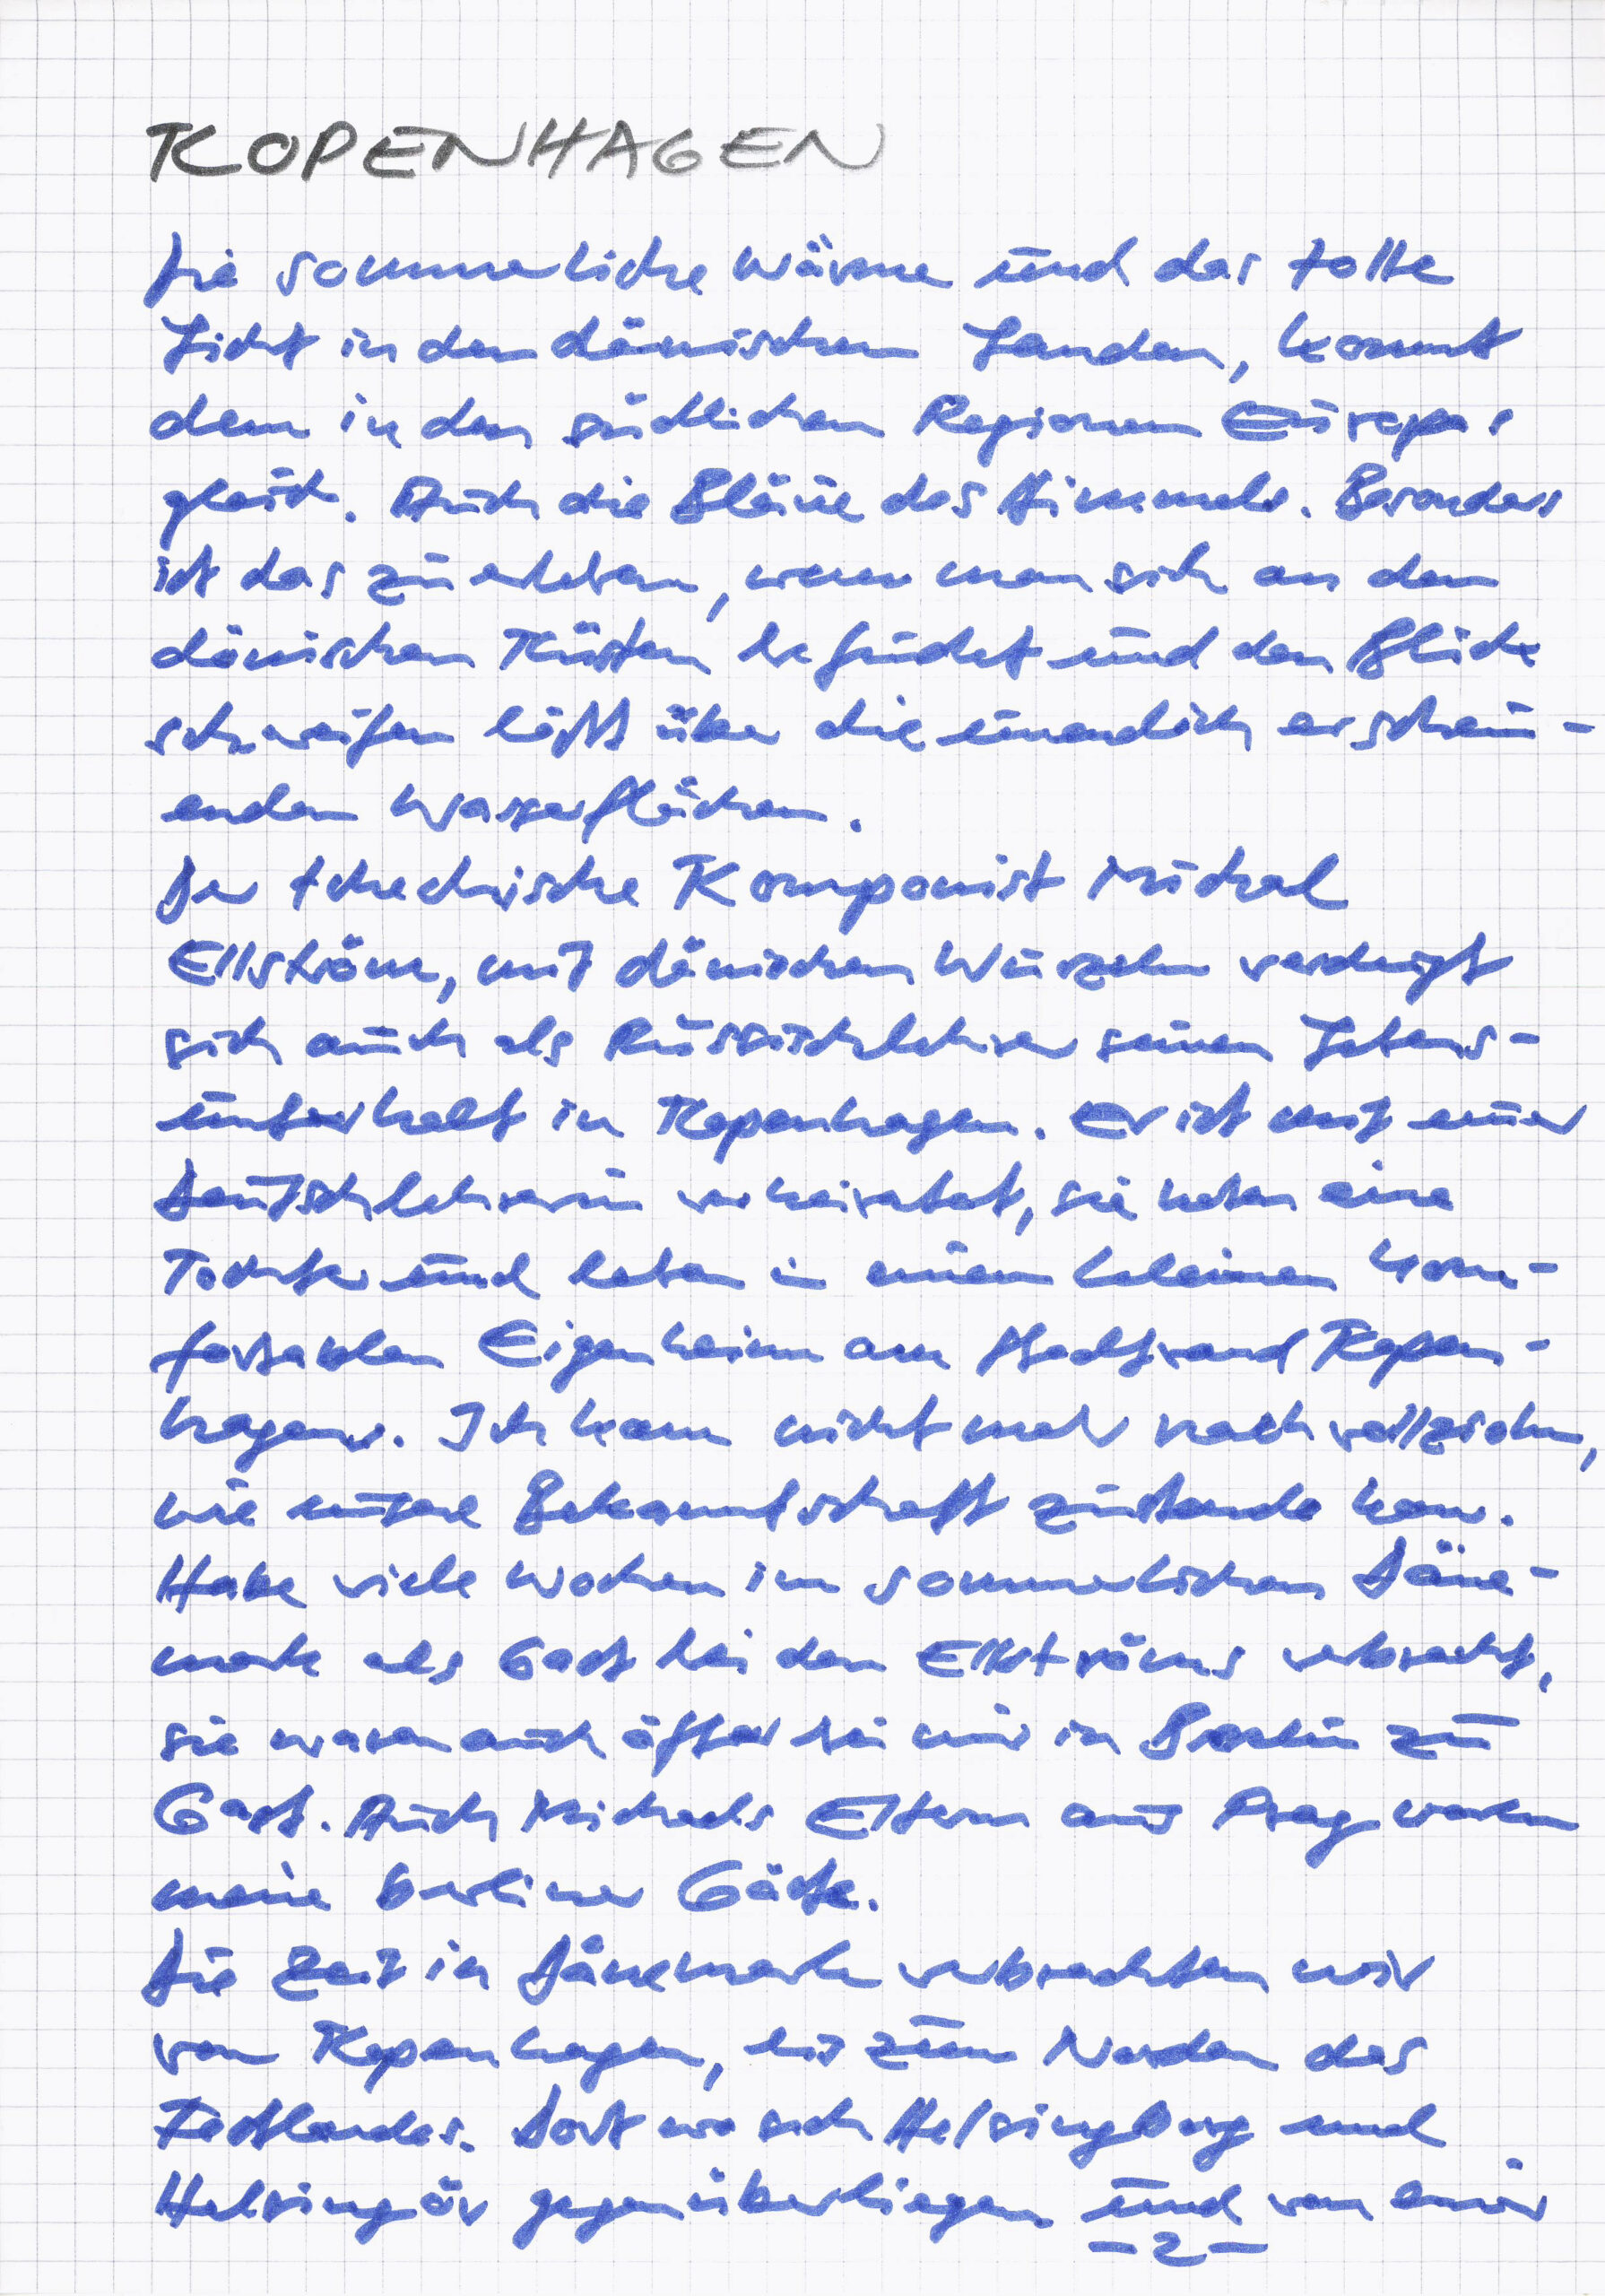 KOPENHAGEN
Die sommerliche Wärme und das tolle
Licht in den dänischen Landen, kommt
dem in den südlichen Regionen Europas
gleich. Auch die Bläue des Himmels. Besonders
ist das zu erleben, wenn man sich an den
dänischen Küsten befindet und den Blick
schweifen läßt über die unendlich erschein-
enden Wasserflächen.
Der tchechische Komponist Michal
Ellström, mit dänischen Wurzeln verdingt
sich auch als Russischlehrer seinen Lebens-
unterhalt in Kopenhagen. Er ist mit einer
Deutschlehrerin verheiratet, sie haben eine
Tochter und leben in einem kleinen kom-
fortablen Eigenheim am Stadtrand Kopen-
hagens. Ich kann nicht mehr nachvollziehn,
wie unsere Bekanntschaft zustande kam.
Habe viele Wochen im sommerlichen Däne-
mark als Gast bei den Ellströms verbracht,
sie waren auch öfter bei mir in Berlin zu
Gast. Auch Michals Eltern aus Prag waren
meine berliner Gäste.
Die Zeit in Dänemark verbrachten wir
von Kopenhagen, bis zum Norden des
Festlandes. Dort wo sich Helsingborg und
Helsingör gegenüberliegen und von einer
-2-